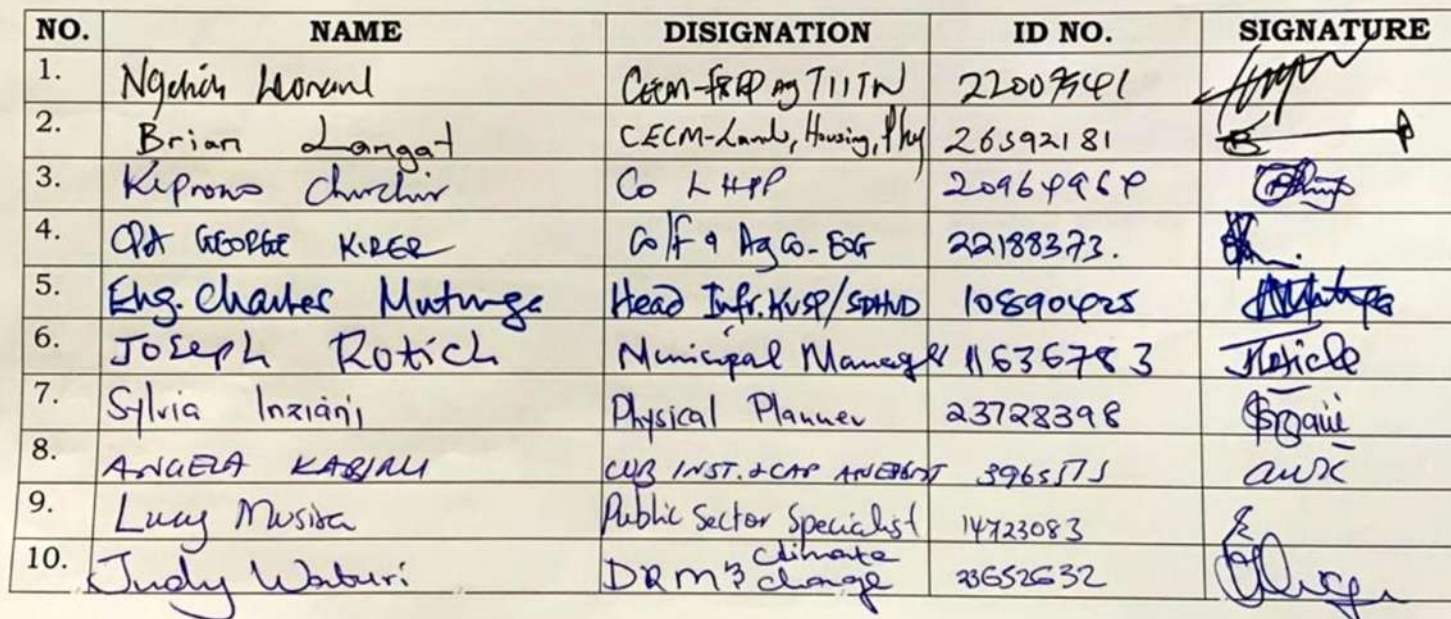 NO. NAME DISIGNATION ID NO. SIGNATURE
1. Ngetich 22007541
2. Brian Langat CECM-Lands, Housing, Phy 26592181
3. Kiprono Churchir Co LHPP 20964964
4. CPA GEORGE KIRER 22188373.
5. Eng. Charles Mutunga Head Infr. KUSP/SDHUD 10890425
6. Joseph Rotich Municipal Manager 11636783 JRotich
7. Sylvia Inziani Physical Planner 23728398
8. ANGELA KABIRU INST. & CAP
9. Lucy Musiva Public Sector Specialist 14723083
10. Judy Waburi DRM & climate change 23652632